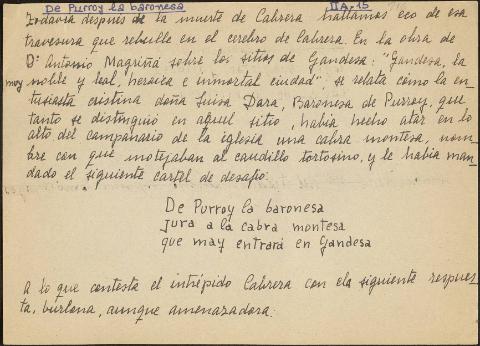 De Purroy la baronesa IIA-15
Todavía después de la muerte de Cabrera hallamos eco de esa
travesura que rebulle en el cerebro de Cabrera. En la obra de
Dⁿ Antonio Magriñá sobre los sitios de Gandesa: "Gandesa, la
muy noble y leal, heroica e inmortal ciudad", se relata como la en-
tusiasta cristina doña Luisa Dara, Baronesa de Purroy, que
tanto se distinguió en aquel sitio, había hecho atar en lo
alto del campanario de la iglesia una cabra montesa, nom-
bre con que motejaban al caudillo tortosino, y le había man-
dado el siguiente cartel de desafío:
De Purroy la baronesa
jura a la cabra montesa
que may entrará en Gandesa
a lo que contesta el intrépido Cabrera con ela siguiente respues-
ta, burlona, aunque amenazadora: